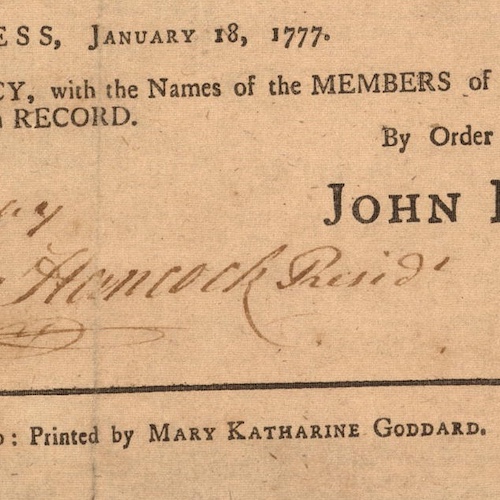 ESS, JANUARY 18, 1777.
CY, with the Names of the MEMBERS of
RECORD.
By Order
JOHN
Hancock Presidt
: Printed by MARY KATHARINE GODDARD.